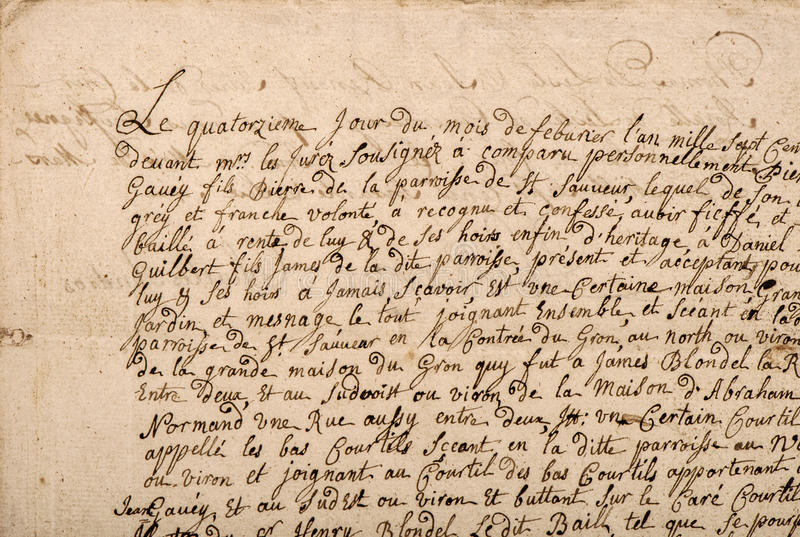 Le quatorzieme Jour du mois de feburier l'an mille sept Cen
devant mrs les Juréz Sousignez a comparu personnellement Pier
Gavéy fils Pierre de la parroisse de St Sauveur, lequel de son
gréy et franche volonté, à recognu et confessé, auoir fieffé, et
baillé à rente de luy & de ses hoirs enfin d'heritage, à Daniel
Guilbert fils James de la dite parroisse, présent et acceptant, pou
luy & ses hoirs à Jamais, scavoir Est, vne Certaine maison, Gran
Jardin, et mesnage le tout joignant Ensemble et Scéant en la
parroisse de St Sauveur en la Contrée du Gron, au north ou viron
de la grande maison du Gron quy fut à James Blondel la R
Entre deux, Et au Sudvoist ou viron de la Maison d'Abraham
Normand vne Rue aussy entre deux, Itt: vn Certain Courtil
appellé les bas Courtils Sceant en la ditte parroisse au
ou viron et joignant au Courtil des bas Courtils appartenant
Jean Gavéy, Et au Sudest ou viron Et buttant sur le Caré Courtil
du Sr Henry Blondel Ledit Bail tel que se pourp